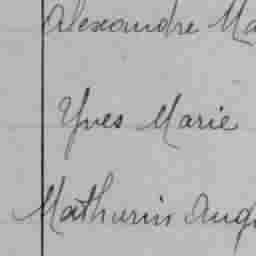 Alexandre Ma
Yves Marie
Mathurin Aug